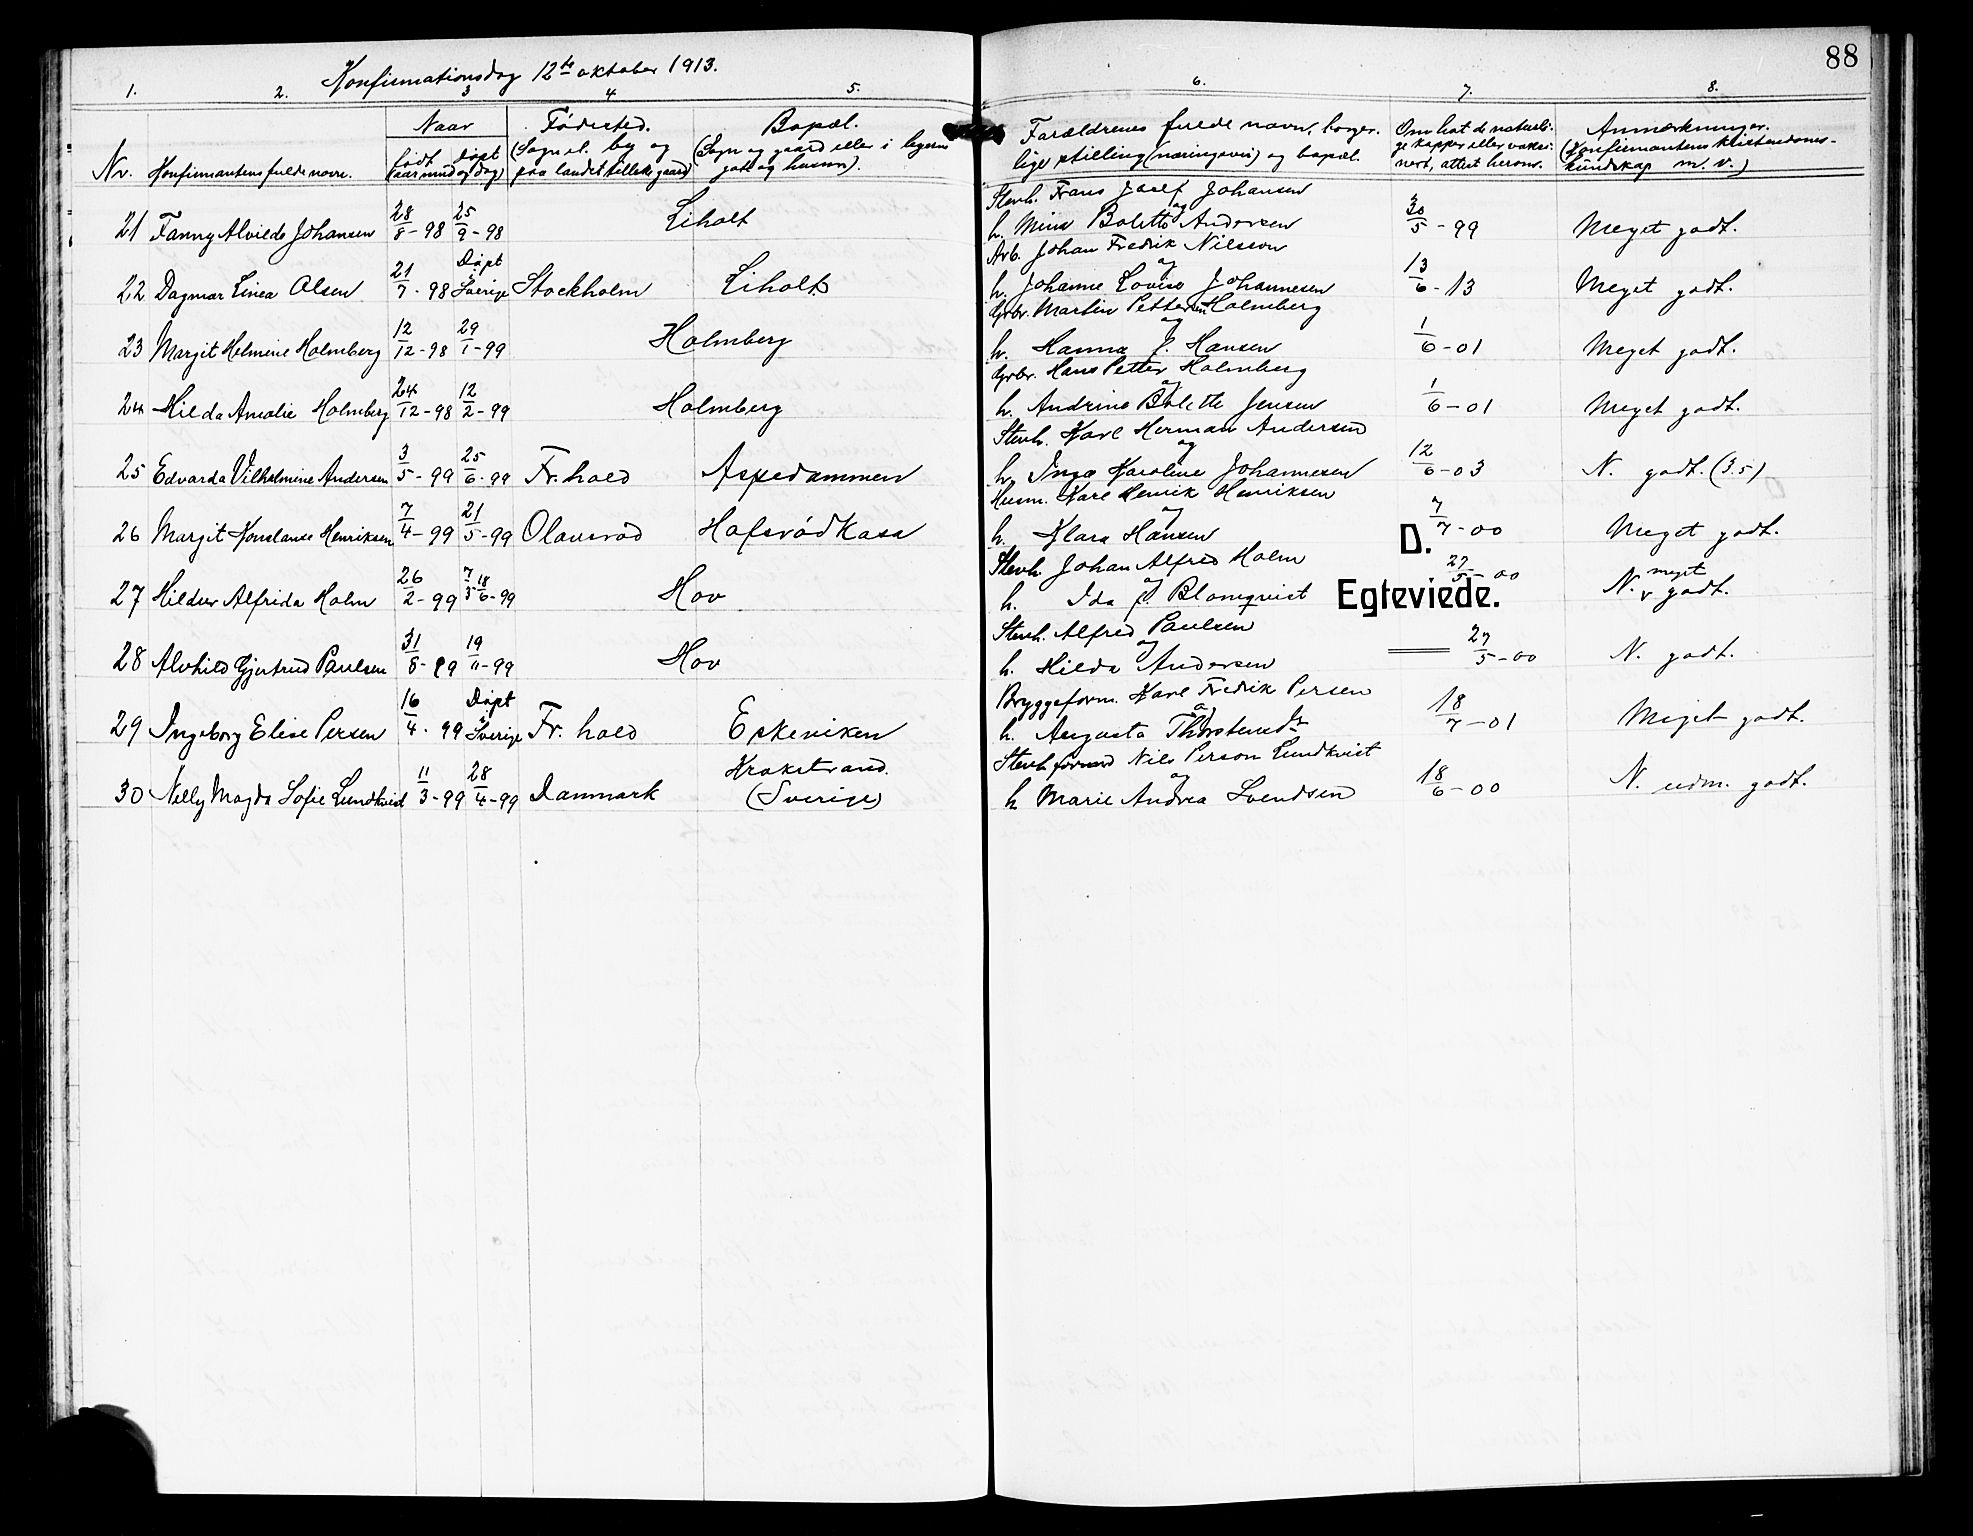 88
Konfirmationsdag 12te oktober 1913.
1. 2. 3 4 5. 6. 7. 8.
Nr. Konfirmantens fulde navn.
Naar
født døpt
(aar mnd og dag)
Fødested.
(Sogn el. by og
paa landet tillike gaard)
Bopæl.
(Sogn og gaard eller i byerne
gate og husnr).
Forældrenes fulde navn, borger-
lige stilling (næringsvei) og bopæl.
Om hat de naturli-
ge kopper eller vaksi-
nert, attest herom.
Anmærkninger.
(Konfirmantens kristendoms-
kundskap m. v.)
Stenh. Frans Josef Johansen
og
21 Fanny Alvilde Johansen 28/8-98 25/9-98 Liholt h. Mina Bolette Andersen 30/5-99 Meget godt.
Arb. Johan Fredrik Nilsson
og
22 Dagmar Linea Olsen 21/7-98 Døpt i Sverige Stockholm Liholt h. Johanne Lovise Johannesen 13/6-13 Meget godt.
Gbr. Martin Pettersen Holmberg
og
23 Margit Helmine Holmberg 12/12-98 29/1-99 Holmberg h. Hanna J. Hansen 1/6-01 Meget godt.
Gbr. Hans Petter Holmberg
og
24 Hilda Amalie Holmberg 24/12-98 12/2-99 Holmberg h. Andrine Bolette Jensen 1/6-01 Meget godt.
Stenh. Karl Herman Andersen
og
25 Edvarda Vilhelmine Andersen 3/5-99 25/6-99 Fr.hald Aspedammen h. Inga Karoline Johannesen 12/6-03 N. godt. (3.5)
Husm. Karl Henrik Henriksen
og
26 Margit Konstanse Henriksen 7/4-99 21/5-99 Olavsrød Hafsrødkasa h. Klara Hansen 7/7-00 Meget godt.
D.
Stenh. Johan Alfred Holm
og
27 Hildur Alfrida Holm 26/2-99 7/5 18/6-99 Hov h. Ida J. Blomqvist 27/5-00 N. meget godt.
Egteviede.
Stenh. Alfred Paulsen
og
28 Alvhild Gjertrud Paulsen 31/8-99 19/11-99 Hov h. Hilda Andersen 27/5-00 N. godt.
Bryggeform. Karl Fredrik Persen
og
29 Ingeborg Elise Persen 16/4-99 Døpt i Sverige Fr.hald Eskeviken h. Augusta 18/7-01 Meget godt.
Stenh formand Nils Person Lundkvist
og
30 Nelly Magda Sofie Lundkvist 11/3-99 28/4-99 Danmark Krokstrand. (Sverige) h. Marie Andrea Svendsen 18/6-00 N. udm. godt.